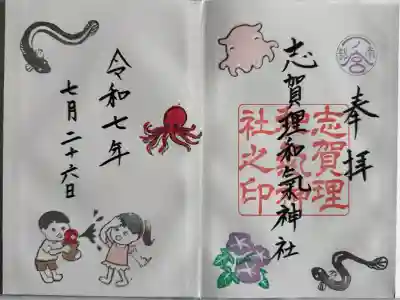 奉拝
志賀理和氣神社
志賀理
和氣神
社之印
令和七年
七月二十六日